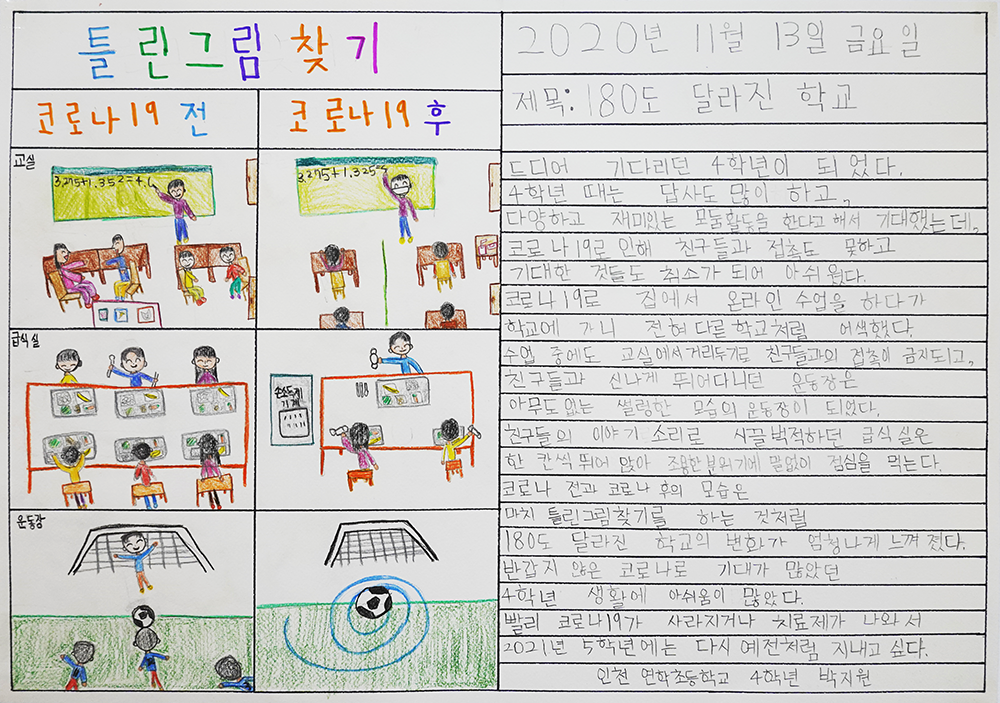 틀린그림찾기
코로나19 전
코로나19 후
교실
3.275+1.352=4.6
3.275+1.325=
급식실
손소독기
기계
운동장
2020년 11월 13일 금요일
제목: 180도 달라진 학교
드디어 기다리던 4학년이 되었다.
4학년 때는 답사도 많이 하고,
다양하고 재미있는 모둠활동을 한다고 해서 기대했는데,
코로나19로 인해 친구들과 접촉도 못하고
기대한 것들도 취소가 되어 아쉬웠다.
코로나19로 집에서 온라인 수업을 하다가
학교에 가니 전혀 다른 학교처럼 어색했다.
수업 중에도 교실에서 거리두기로 친구들과의 접촉이 금지되고,
친구들과 신나게 뛰어다니던 운동장은
아무도 없는 썰렁한 모습의 운동장이 되었다.
친구들의 이야기 소리로 시끌벅적하던 급식실은
한 칸씩 뛰어 앉아 조용한 분위기에 말없이 점심을 먹는다.
코로나 전과 코로나 후의 모습은
마치 틀린그림찾기를 하는 것처럼
180도 달라진 학교의 변화가 엄청나게 느껴졌다.
반갑지 않은 코로나로 기대가 많았던
4학년 생활에 아쉬움이 많았다.
빨리 코로나19가 사라지거나 치료제가 나와서
2021년 5학년에는 다시 예전처럼 지내고 싶다.
인천 연학초등학교 4학년 박지원